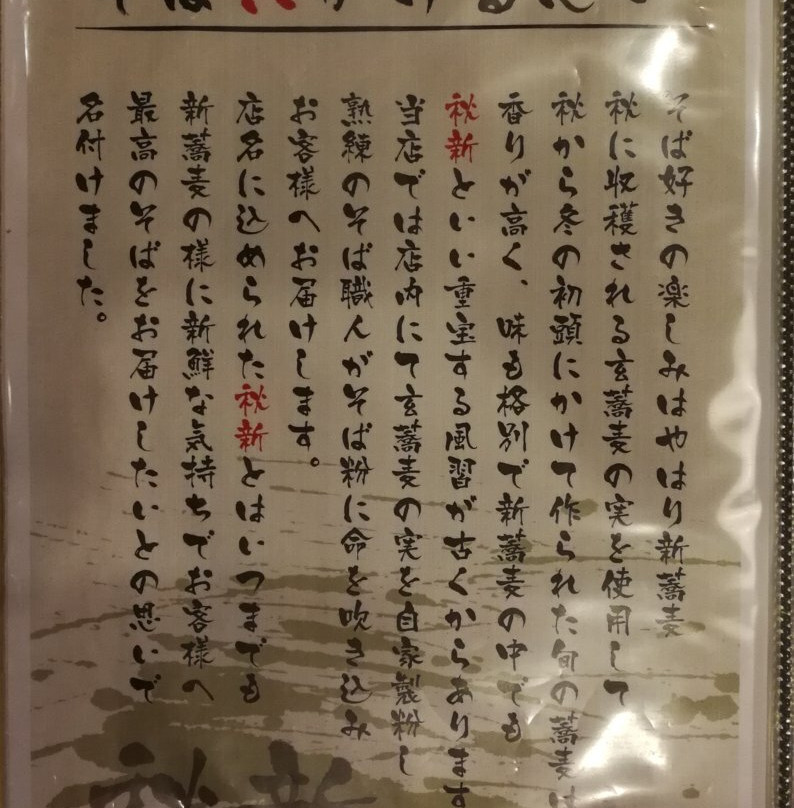 そば好きの楽しみはやはり新蕎麦
秋に収穫される玄蕎麦の実を使用して
秋から冬の初頭にかけて作られた旬の蕎麦は
香りが高く、味も格別で新蕎麦の中でも
秋新といい重宝する風習が古くからあります
当店では店内にて玄蕎麦の実を自家製粉し
熟練のそば職人がそば粉に命を吹き込み
お客様へお届けします。
店名に込められた秋新とはいつまでも
新蕎麦の様に新鮮な気持ちでお客様へ
最高のそばをお届けしたいとの思いで
名付けました。
秋新